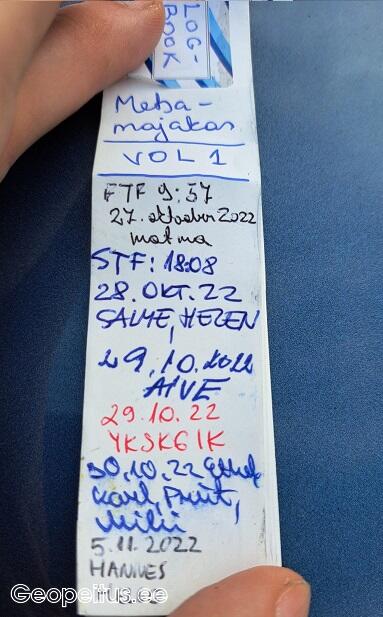 LOG-
BOOK
Metsa-
majakas
VOL 1
FTF 9:57
27. oktoober 2022
matma
STF: 18:08
28. OKT. 22
SALME, HELEN
29.10.2022
AIVE
29.10.22
YKSKGIK
30.10.22
Karl, Priit,
Mihü
5.11.2022
HANNES
Geopeitus.ee